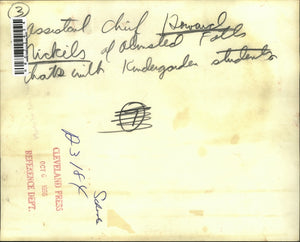 3
Assistant Chief Howard
Nickels of Olmsted Falls
chats with Kindergarden students
7
D3184
Schools
CLEVELAND PRESS
OCT 6
REFERENCE DEPT.